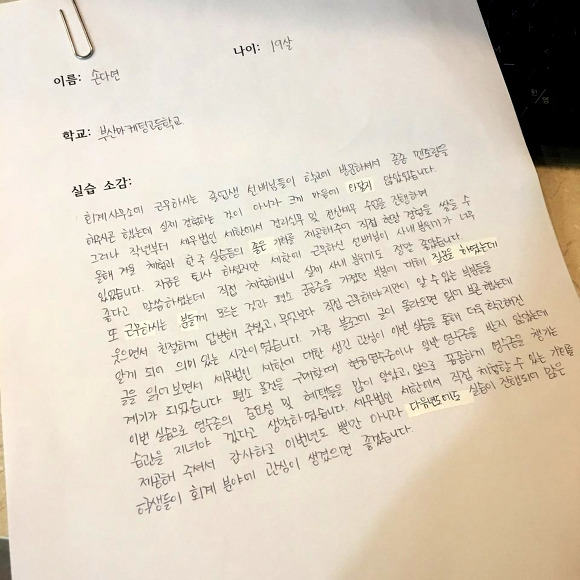 나이: 19살
이름: 손다연
학교: 부산마케팅고등학교
실습 소감:
회계사무소에 근무하시는 졸업생 선배님들이 학교에 방문하셔서 종종 멘토링을
해주시곤 했는데 실제 경험하는 것이 아니라 크게 마음에 와닿지 않았었습니다.
그러나 작년부터 세무법인 세하에서 경리실무 및 전산세무 수업을 진행하며
올해 겨울 체험과 한주 실습등의 좋은 기회를 제공해주어 직접 현장 경험을 쌓을 수
있었습니다. 지금은 퇴사 하셨지만 세하에 근무하신 선배님이 사내 분위기가 너무
좋다고 말씀하셨는데 직접 체험해보니 실제 사내 분위기도 정말 좋았습니다.
또 근무하시는 분들께 모르는 것과 평소 궁금증을 가졌던 부분에 대해 질문을 하였는데
웃으면서 친절하게 답변해 주셨고, 무엇보다 직접 근무해야지만이 알 수 있는 부분들을
알게 되어 의미 있는 시간이였습니다. 가끔 블로그에 글이 올라오면 읽어 보곤 했는데
글을 읽어보면서 세무법인 세하에 대한 생긴 관심이 이번 실습을 통해 더욱 확고해진
계기가 되었습니다. 평소 물건을 구매할때 현금영수증이나 일반 영수증을 받지 않았는데
이번 실습으로 영수증의 중요성 및 혜택들을 많이 알았고, 앞으로 꼼꼼하게 영수증을 챙기는
습관을 지녀야 겠다고 생각하였습니다. 세무법인 세하에서 직접 체험할 수 있는 기회를
제공해 주셔서 감사하고 이번년도 뿐만 아니라 다음번에도 실습이 진행되어 많은
학생들이 회계 분야에 관심이 생겼으면 좋겠습니다.
한/영